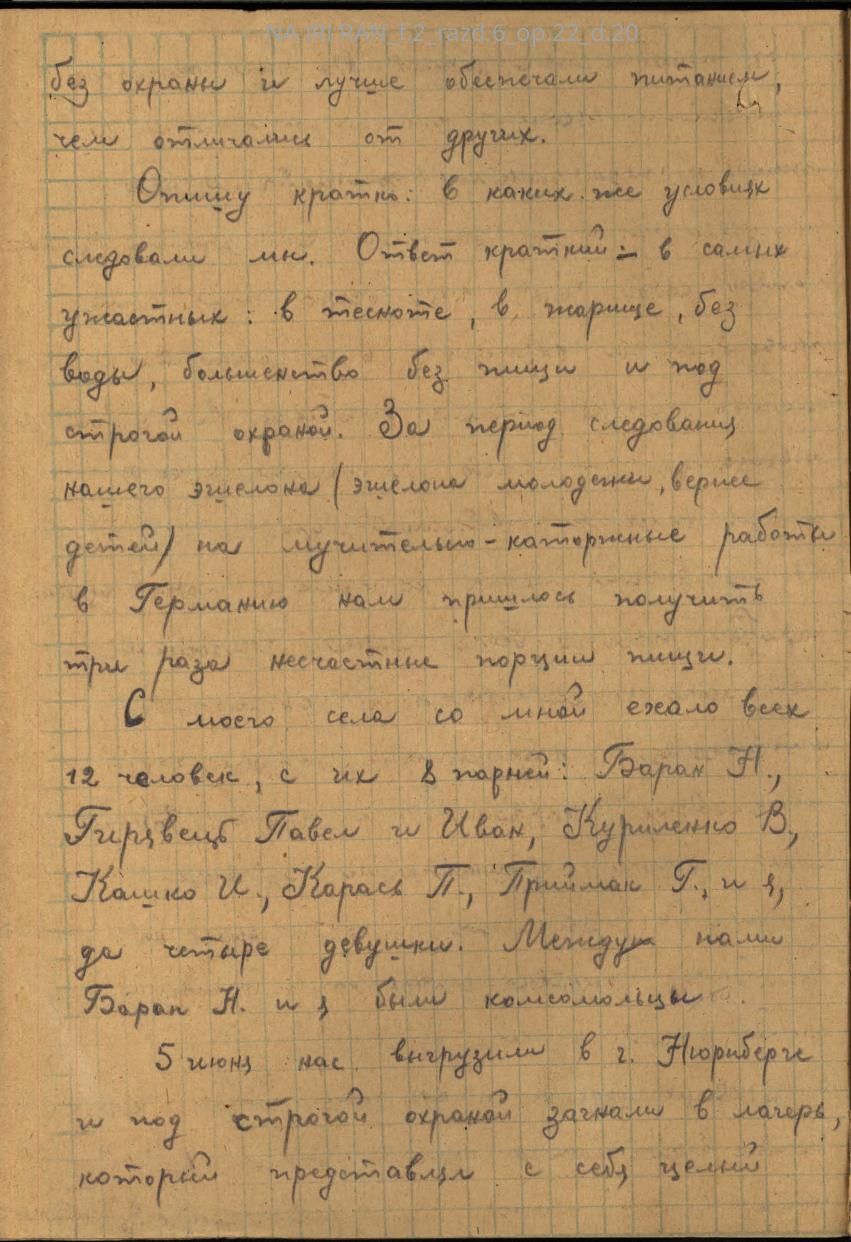 NA_IRI_RAN_f.2_razd.6_op.22_d.20
без охраны и лучше обеспечали питанием,
чем отличались от других.
Опишу кратко: в каких же условиях
следовали мы. Ответ краткий: – в самых
ужастных: в тесноте, в жарище, без
воды, большенство без пищи и под
строгой охраной. За период следования
нашего эшелона (эшелона молодежи, вернее
детей) на мучительно-каторжные работы
в Германию нам пришлось получить
три раза несчастные порции пищи.
С моего села со мной ехало всех
12 человек, с их 8 парней: Баран Н.,
Гирявець Павел и Иван, Куриленко В.,
Кашко И., Карась П., Приймак Г., и я,
да четыре девушки. Между нами
Баран Н. и я были комсомольцы.
5 июня нас выгрузили в г. Нюрнберге
и под строгой охраной загнали в лагерь,
который представлял с себя целый